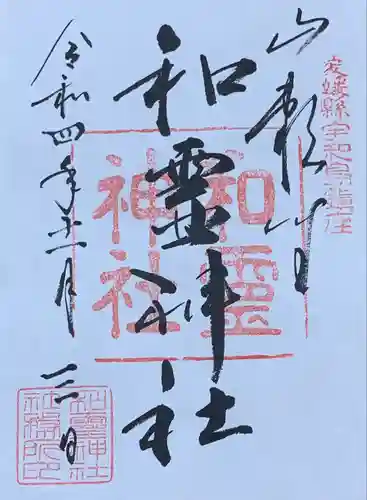 愛媛縣宇和島鎮座
山頼
和靈神社
和靈神社
令和四年十一月三日
和靈神社社務所印